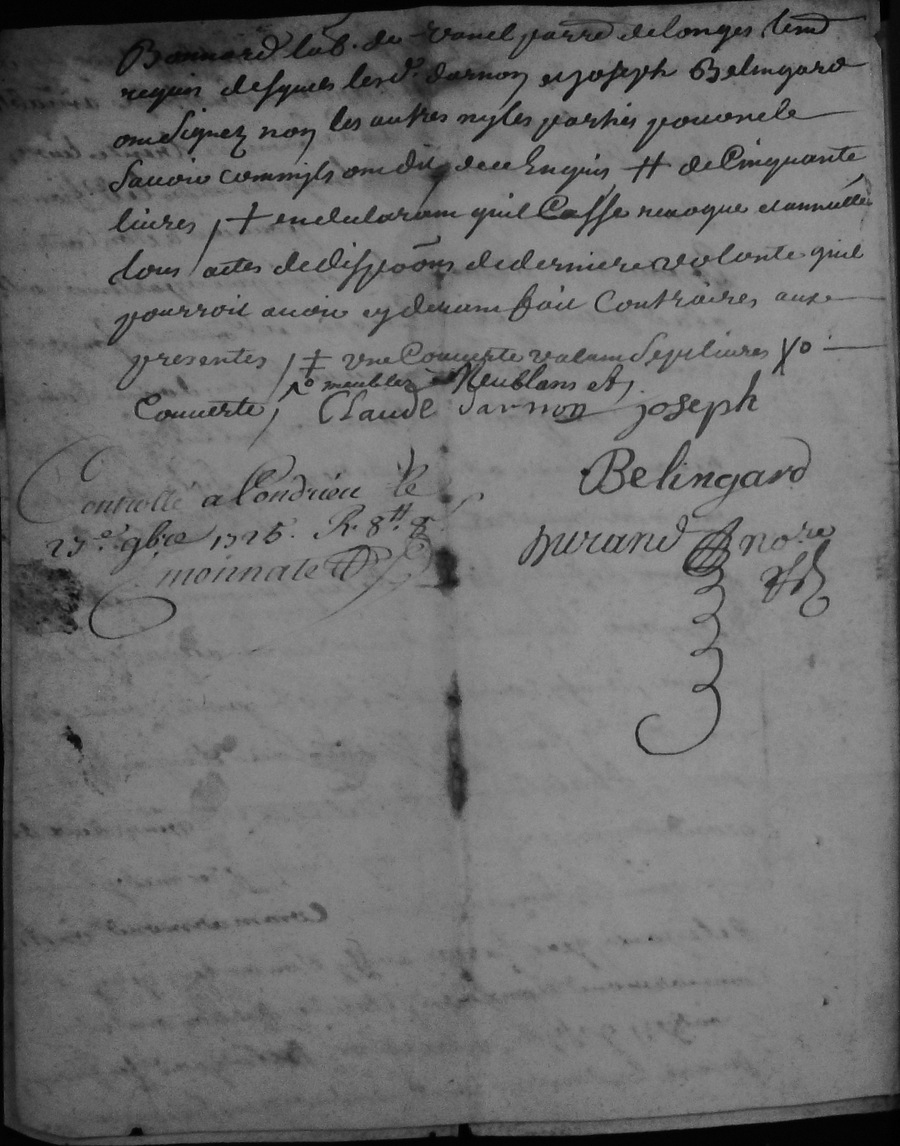 Bonnard lab. de vanel parrd de longes tem
requis desques les d. darnon et joseph Belingard
ont signez non les autres ny les parties pour ne le
savoir comm ils ont dit de ce enquis # de Cinquante
livres / + en declarant quil Casse revoque et annulle
tous actes de dispoons de derniere volonte quil
pourroit avoir cy devant fait Contraires aux
presentes / ‡ une Couverte valant sept livres Xo
Couverte / Xo meubles Neublans et
Claude darnon joseph
Belingard
Controllé a Condrieu le
27e 9bre 1725 R 8# 8
monnate
Durand nore